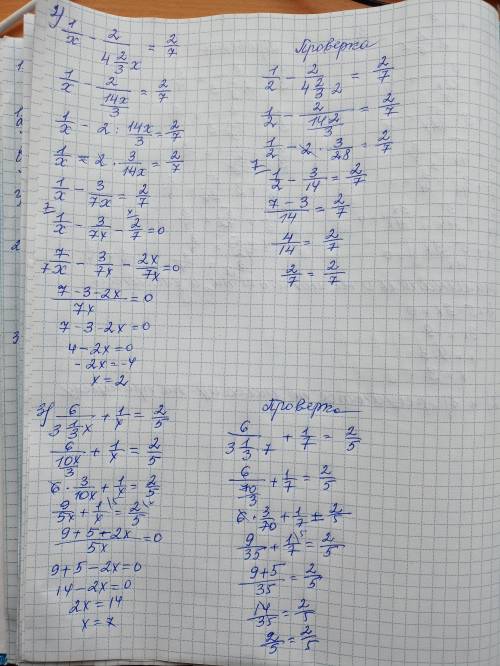 2) 1/x - 2/(4 2/3 x) = 2/7
1/x - 2/(14x/3) = 2/7
1/x - 2 : 14x/3 = 2/7
1/x = 2 · 3/14x = 2/7
1/x - 3/7x = 2/7
7 1/x - 3/7x - 2/7 x = 0
7/7x - 3/7x - 2x/7x = 0
(7-3-2x)/7x = 0
7-3-2x=0
4-2x=0
-2x=-4
x=2
Проверка
1/2 - 2/(4 2/3 2) = 2/7
1/2 - 2/(14 2/3) = 2/7
1/2 - 2 · 3/28 = 2/7
7 1/2 - 3/14 = 2/7
(7-3)/14 = 2/7
4/14 = 2/7
2/7 = 2/7
3) 6/(3 1/3 x) + 1/x = 2/5
6/(10x/3) + 1/x = 2/5
6 · 3/10x + 1/x = 2/5
9/5x + 1/x \5 = 2/5 \x
(9+5+2x)/5x = 0
9+5-2x=0
14-2x=0
2x=14
x=7
Проверка
6/(3 1/3 7) + 1/7 = 2/5
6/(70/3) + 1/7 = 2/5
6 · 3/70 + 1/7 = 2/5
9/35 + 1/7 \5 = 2/5
(9+5)/35 = 2/5
14/35 = 2/5
2/5 = 2/5
1.
2
3